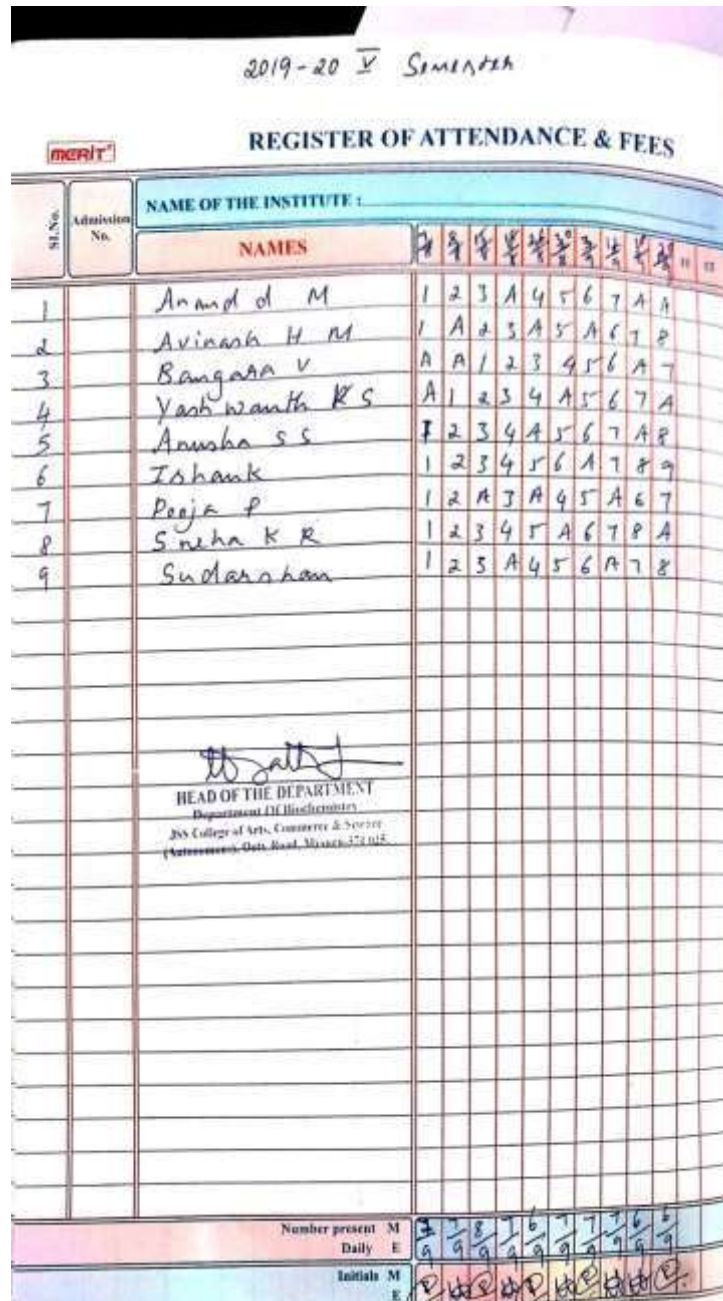 2019-20 V Semester
MERIT
REGISTER OF ATTENDANCE & FEES
Sl.No.
Admission No.
NAME OF THE INSTITUTE :
NAMES
11 12
1 Anand d M 1 2 3 A 4 5 6 7 A A
2 Avinash H M 1 A 2 3 A 5 A 6 7 8
3 Bangasa V A A 1 2 3 4 5 6 A 7
4 Yashwanth K S A 1 2 3 4 A 5 6 7 A
5 Anusha S S 1 2 3 4 A 5 6 7 A 8
6 Ishank 1 2 3 4 5 6 A 7 8 9
7 Pooja P 1 2 A 3 A 4 5 A 6 7
8 Sneha K R 1 2 3 4 5 A 6 7 8 A
9 Sudarshan 1 2 3 A 4 5 6 A 7 8
HEAD OF THE DEPARTMENT
Department Of Biochemistry
JSS College of Arts, Commerce & Science
(Autonomous), Ooty Road, Mysuru-570 025
Number present M
Daily E
7/9 7/9 8/9 7/9 6/9 7/9 7/9 7/9 6/9 6/9
Initials M
E